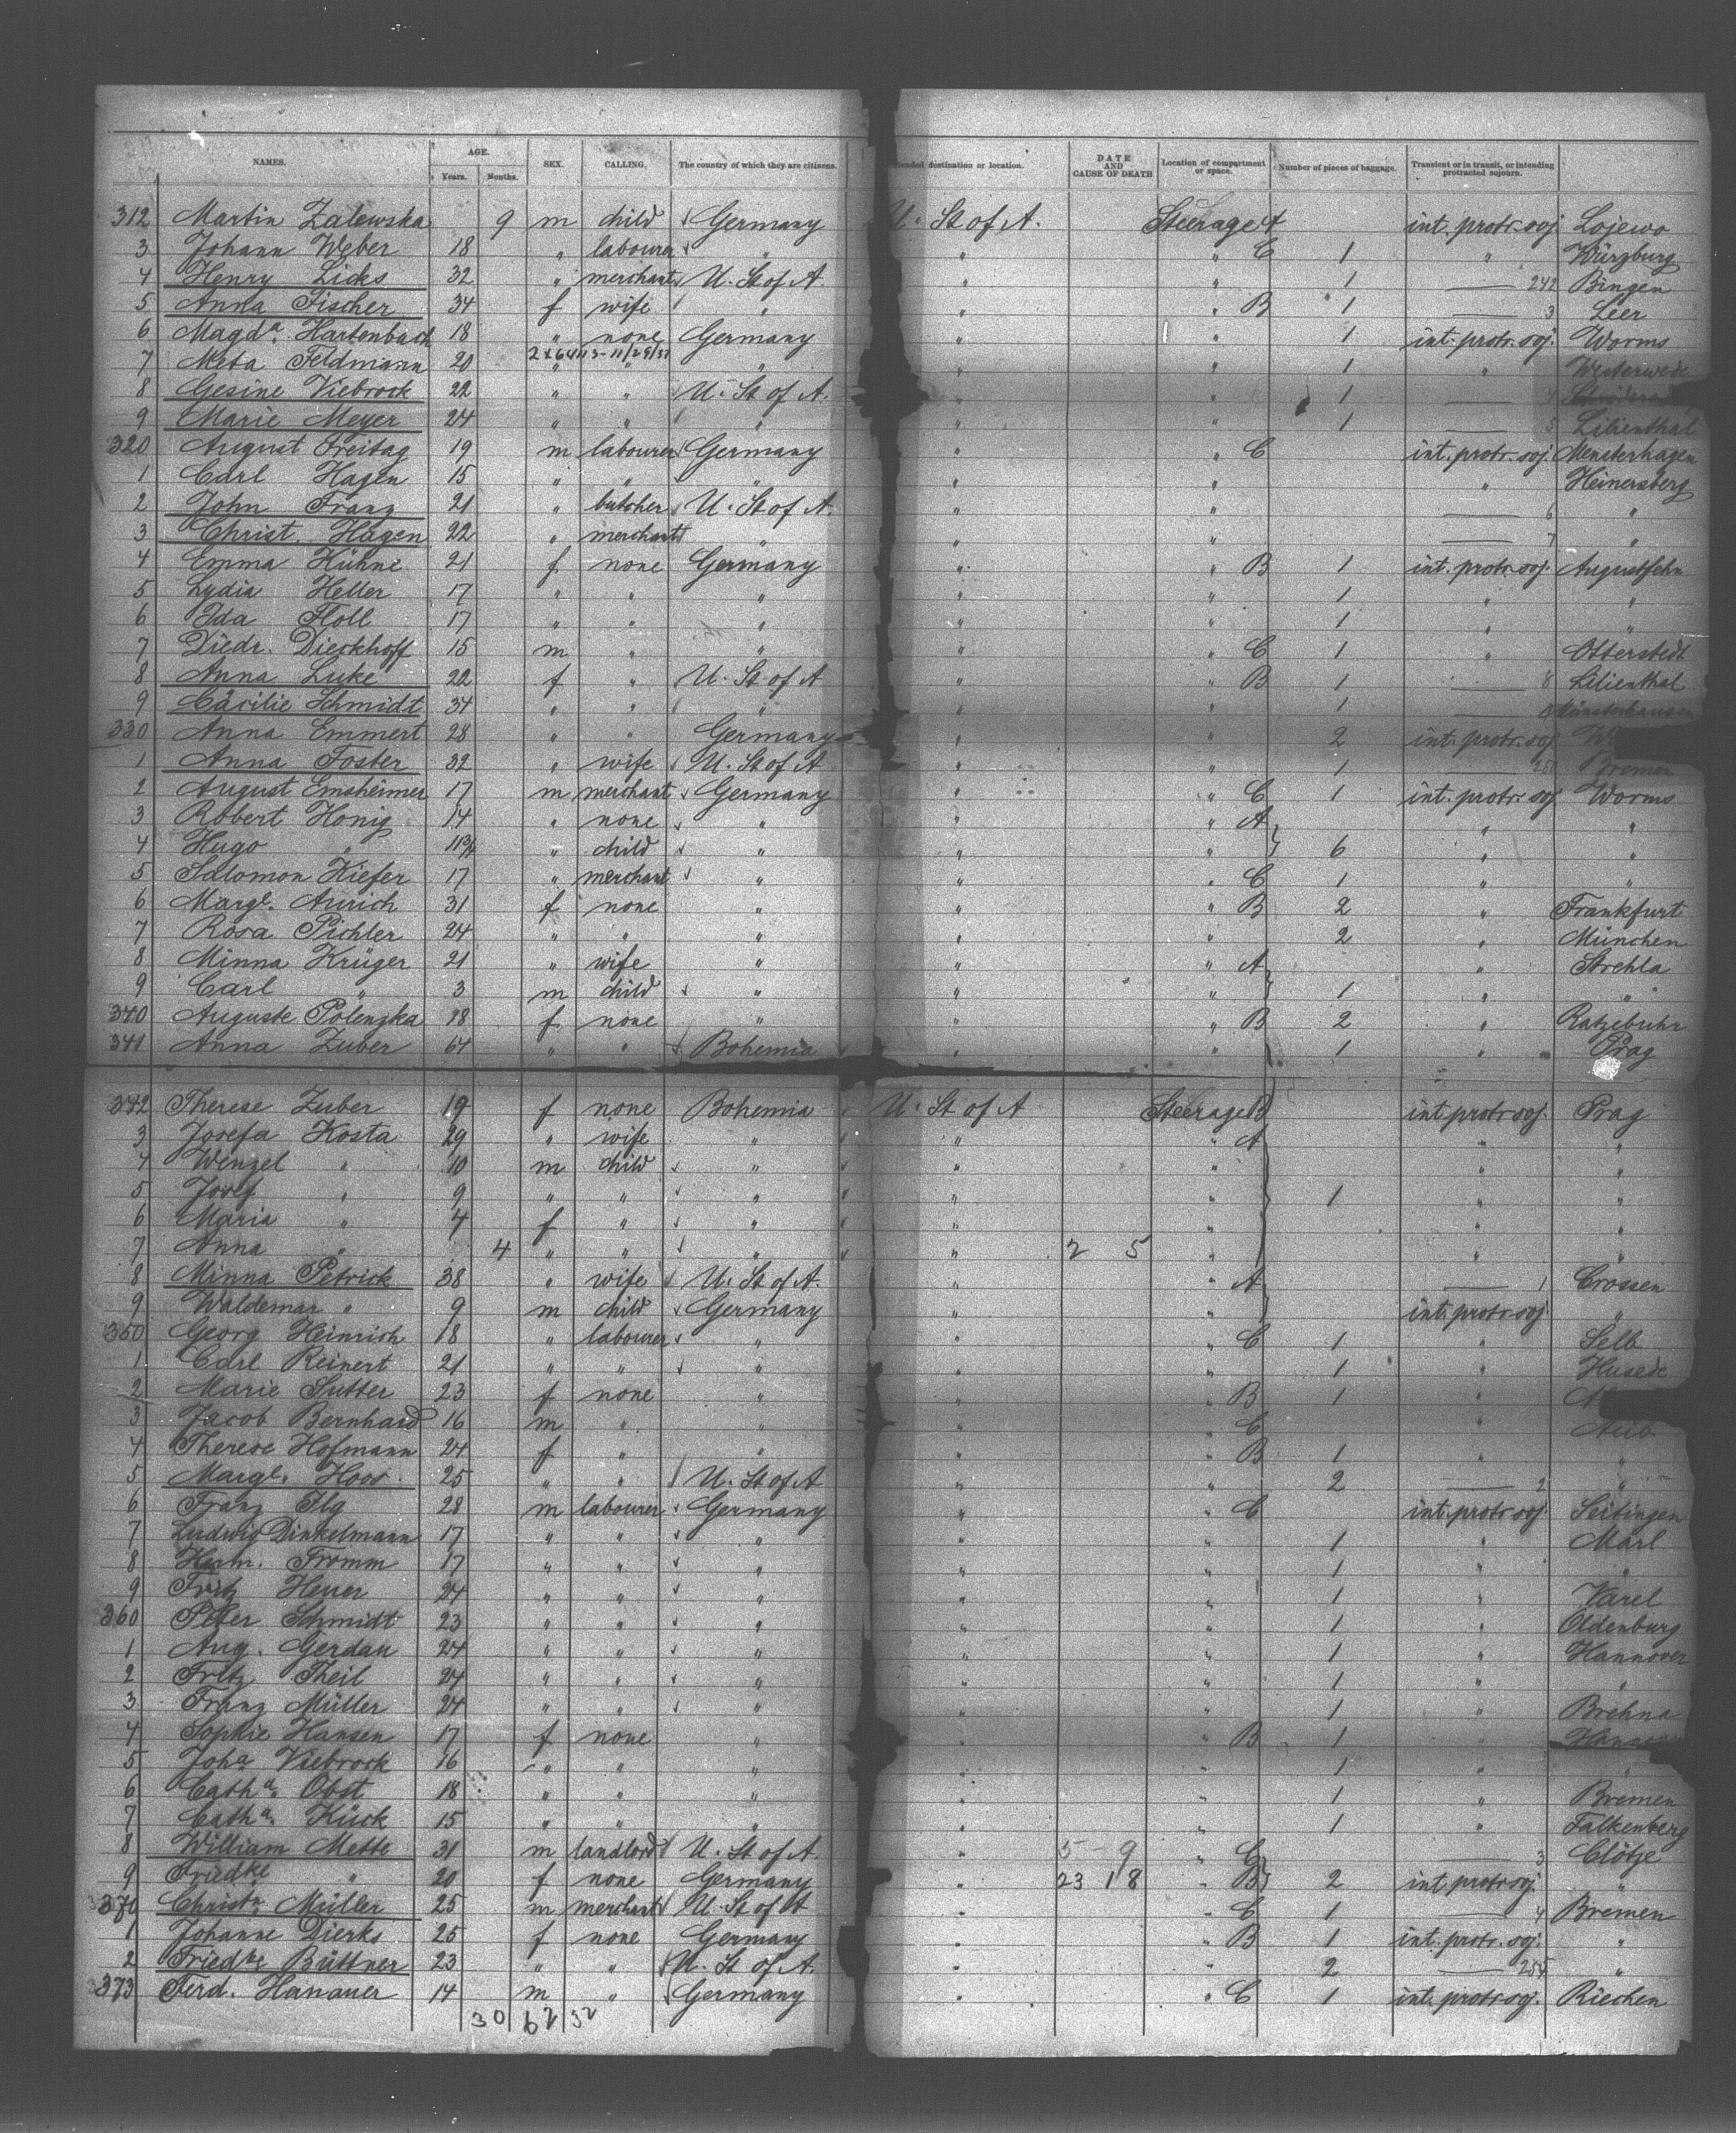 NAMES. AGE. Years. Months. SEX. CALLING. The country of which they are citizens. tended destination or location. DATE AND CAUSE OF DEATH Location of compartment or space. Number of pieces of baggage. Transient or in transit, or intending protracted sojourn.
312 Martin Zalewska 9 m child Germany U. St of A. Steerage A int. protr. soj Lojewo
3 Johann Weber 18 " labourer " " " C 1 " Würzburg
4 Henry Licks 32 " merchant U. St of A. " " 1 242 Bingen
5 Anna Fischer 34 f wife " " " B 1 3 Leer
6 Magda. Hartenbach 18 " none Germany " " 1 int. protr. soj. Worms
7 Meta Feldmann 20 " " " " " 1 " Westerwede
8 Gesine Viebrock 22 " " U. St of A. " " 1 4
9 Marie Meyer 24 " " " " " 1 5 Lilienthal
320 August Freitag 19 m labourer Germany " " C int. protr. soj. Mensterhagen
1 Carl Hagen 15 " " " " " " Heinersberg
2 John Franz 21 " butcher U. St of A. " " 6 "
3 Christ. Hagen 22 " merchant " " " 7 "
4 Emma Kühne 21 f none Germany " " B 1 int. protr. soj. Augustfehn
5 Lydia Heller 17 " " " " " 1 " "
6 Ida Floll 17 " " " " " 1 " "
7 Diedr. Dieckhoff 15 m " " " " C 1 " Otterstedt
8 Anna Luke 22 f " U. St of A " " B 1 8 Lilienthal
9 Cäcilie Schmidt 34 " " " " " 1 Münsterhausen
330 Anna Emmert 28 " " Germany " " 2 int. protr. soj
1 Anna Foster 32 " wife U. St of A " " 1 250 Bremen
2 August Emsheimer 17 m merchant Germany " " C 1 int. protr. soj Worms
3 Robert Honig 14 " none " " " A " "
4 Hugo " 11 3/4 " child " " " 6 " "
5 Salomon Kiefer 17 " merchant " " " C 1 " "
6 Margt. Aurich 31 f none " " " B 2 " Frankfurt
7 Rosa Pichler 24 " " " " " 2 " München
8 Minna Krüger 21 " wife " " " A " Strehla
9 Carl " 3 m child " " " 1 " "
340 Auguste Polenzka 18 f none " " " B 2 " Ratzebuhr
341 Anna Zuber 64 " " Bohemia " " 1 " Prag
342 Therese Zuber 19 f none Bohemia U. St of A Steerage B int protr soj. Prag
3 Josefa Kosta 29 " wife " " " A " "
4 Wenzel " 10 m child " " " " "
5 Josef " 9 " " " " " 1 " "
6 Maria " 4 f " " " " " "
7 Anna " 4 " " " " 2 5 " " "
8 Minna Petrick 38 " wife U. St of A. " " A 1 Crossen
9 Waldemar " 9 m child Germany " " int. protr soj "
350 Georg Heinrich 18 " labourer " " " C 1 " Selb
1 Carl Reinert 21 " " " " " 1 " Husede
2 Marie Sutter 23 f none " " " B 1 "
3 Jacob Bernhard 16 m " " " " C " Aub
4 Therese Hofmann 24 f " " " " B 1 " "
5 Margt. Hoos 25 " " U. St of A " " 2 2 "
6 Franz Ilg 28 m labourer Germany " " C int. protr soj. Seitingen
7 Ludwig Dinkelmann 17 " " " " " 1 " Marl
8 Herm. Fromm 17 " " " " " 1 " "
9 Fritz Heuer 24 " " " " " 1 " Varel
360 Peter Schmidt 23 " " " " " 1 " Oldenburg
1 Aug. Gerdau 24 " " " " " 1 " Hannover
2 Fritz Theil 24 " " " " " 1 " "
3 Franz Müller 24 " " " " " 1 " Brehna
4 Sophie Hansen 17 f none " " " B 1 " Hannover
5 Joha Viebrock 16 " " " " " 1 " "
6 Catha. Obst 18 " " " " " 1 " Bremen
7 Catha. Kück 15 " " " " " 1 " Falkenberg
8 William Mette 31 m landlord U. St of A. " 5 9 " C 3 Clötze
9 Friedke " 20 f none Germany " 23 18 " B 2 int protr soj. "
370 Christn. Müller 25 m merchant U. St of A " " C 1 4 Bremen
1 Johanne Dierks 25 f none Germany " " B 1 int. protr. soj. "
2 Friedke Büttner 23 " " U. St of A. " " 2 255 "
373 Ferd. Hanauer 14 m " Germany " " C 1 int. protr. soj. Riechen
30 62 32